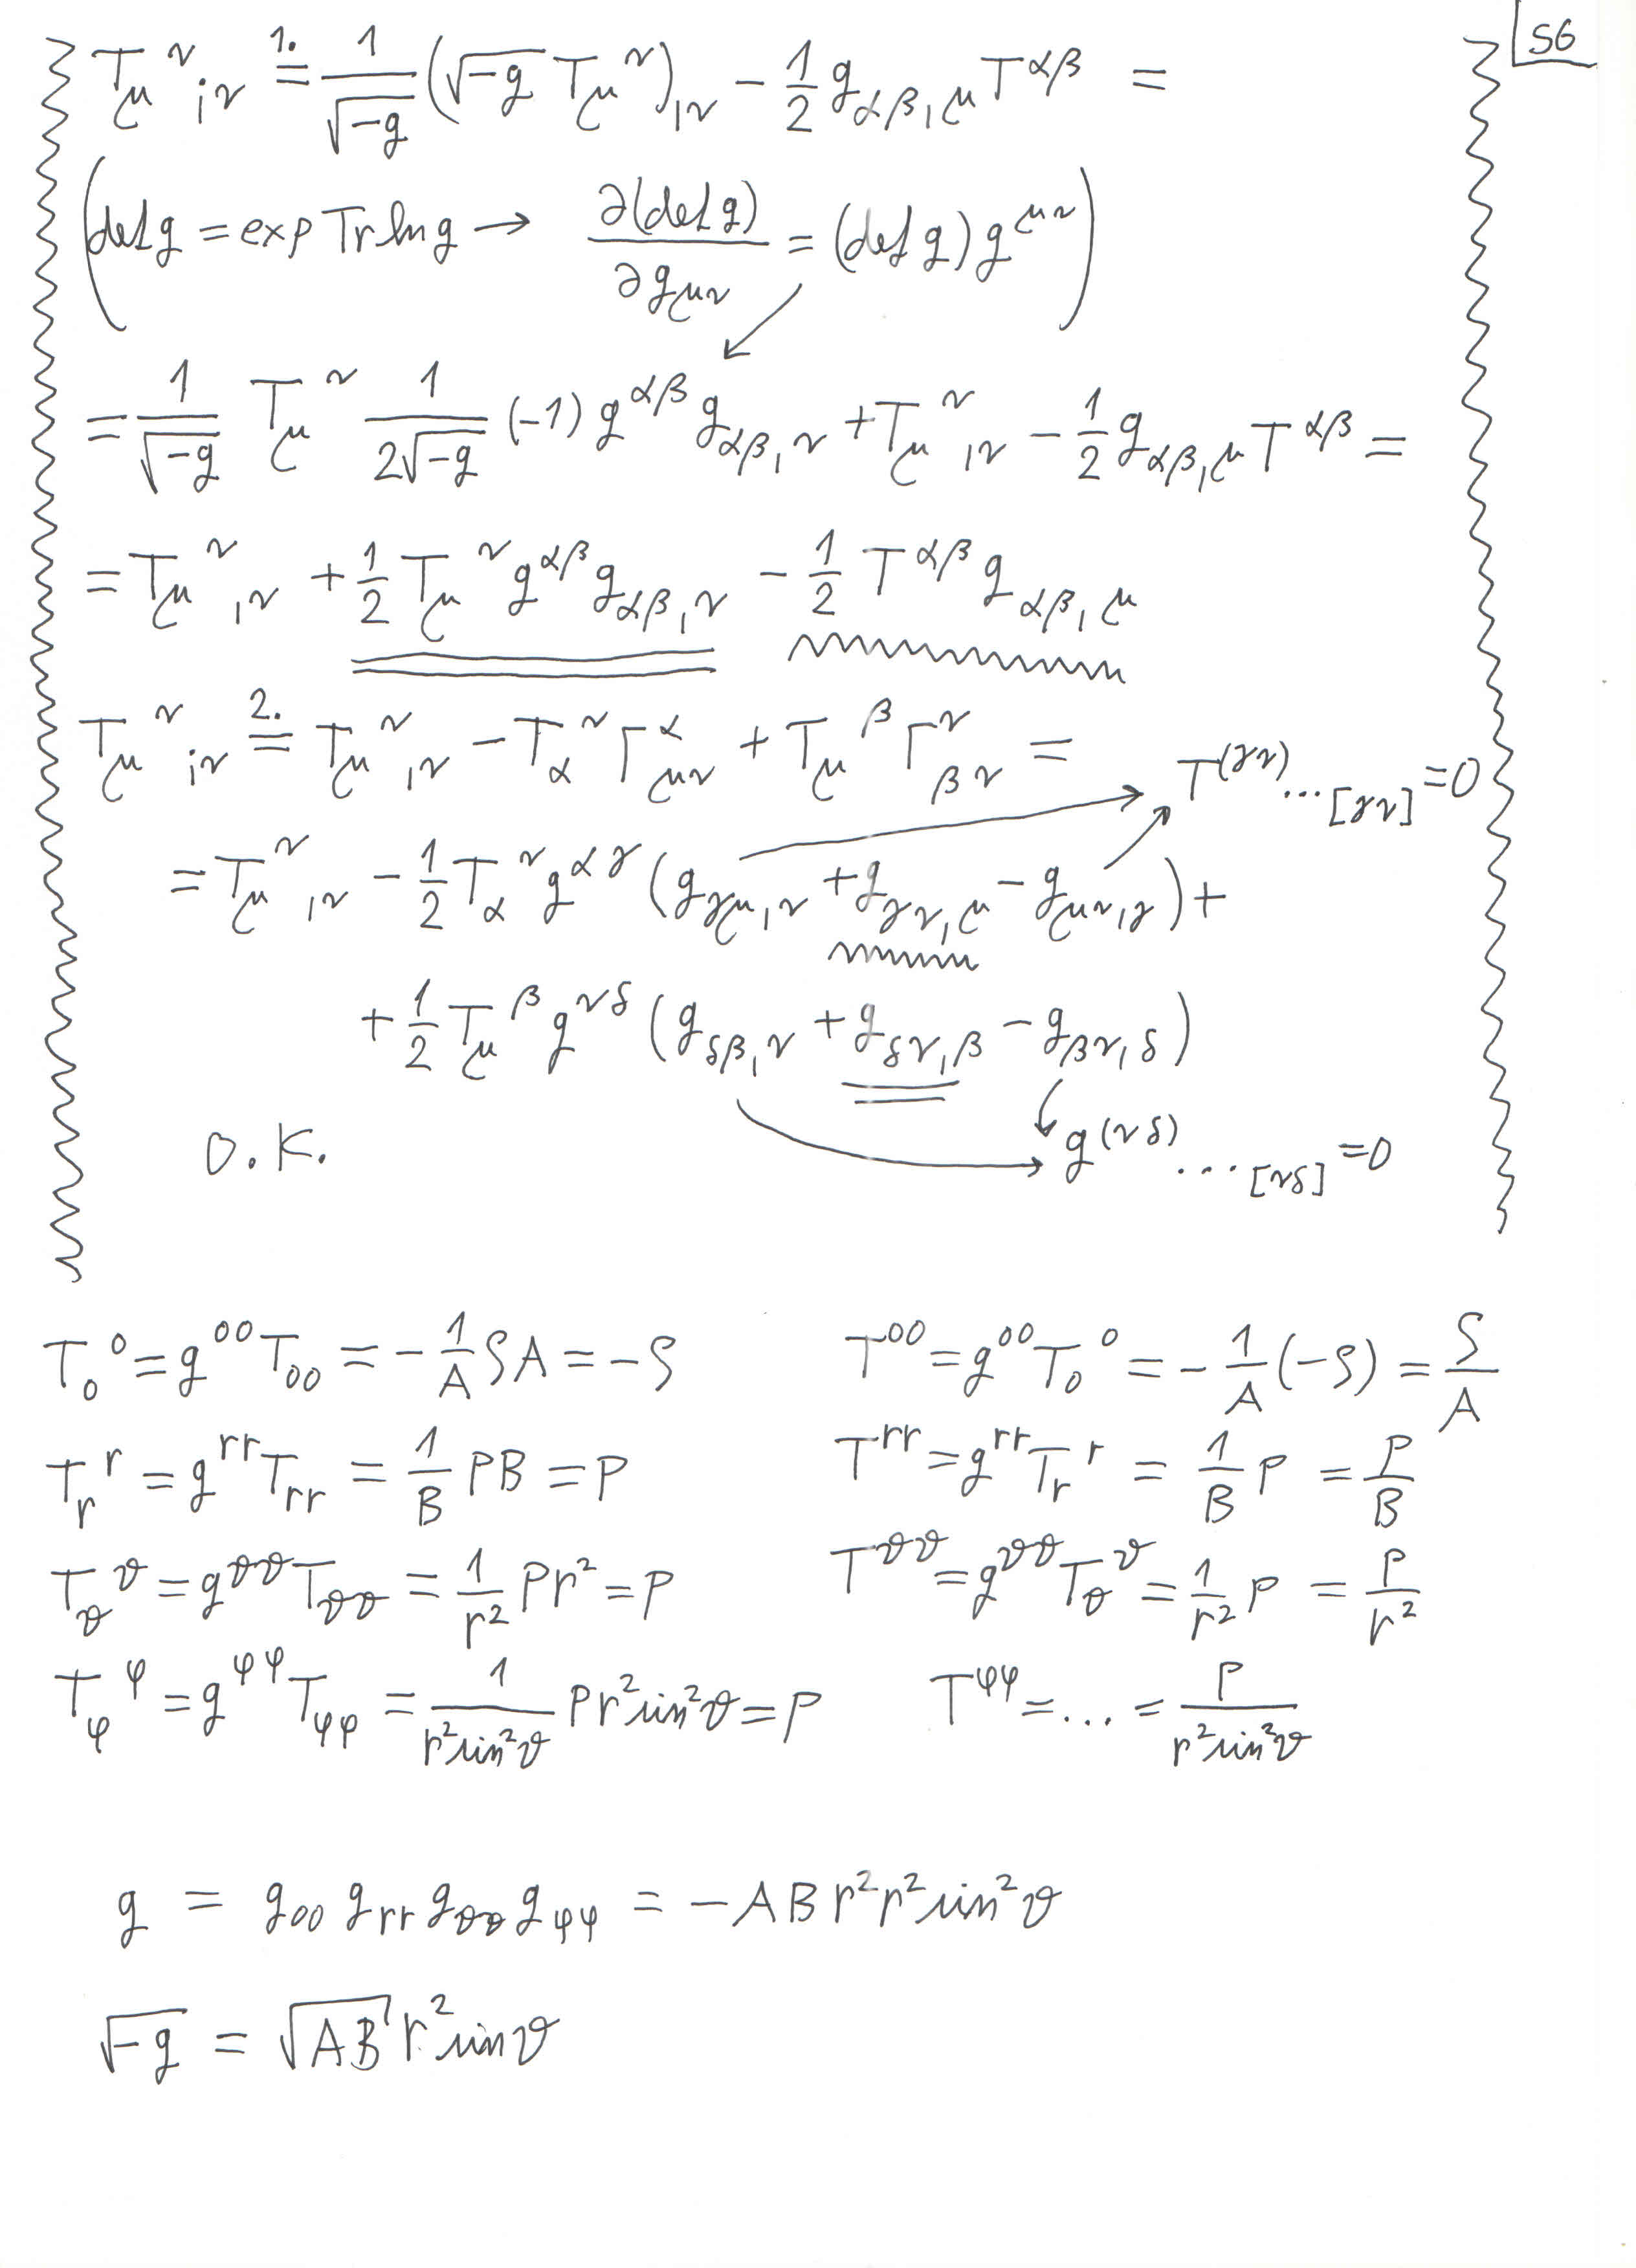 56
T_μ^ν_{;ν} =^{1.} 1/√-g (√-g T_μ^ν)_{,ν} - 1/2 g_{αβ,μ} T^{αβ} =
(det g = exp Tr ln g → ∂(det g)/∂g_{μν} = (det g) g^{μν})
= 1/√-g T_μ^ν 1/(2√-g) (-1) g^{αβ} g_{αβ,ν} + T_μ^ν_{,ν} - 1/2 g_{αβ,μ} T^{αβ} =
= T_μ^ν_{,ν} + 1/2 T_μ^ν g^{αβ} g_{αβ,ν} - 1/2 T^{αβ} g_{αβ,μ}
T_μ^ν_{;ν} =^{2.} T_μ^ν_{,ν} - T_α^ν Γ^α_{μν} + T_μ^β Γ^ν_{βν} =
T^{(γν)} ..._{[γν]} = 0
= T_μ^ν_{,ν} - 1/2 T_α^ν g^{αγ} (g_{γμ,ν} + g_{γν,μ} - g_{μν,γ}) +
+ 1/2 T_μ^β g^{νδ} (g_{δβ,ν} + g_{δν,β} - g_{βν,δ})
O.K.
g^{(νδ)} ..._{[νδ]} = 0
T_0^0 = g^{00} T_{00} = - 1/A ρA = -ρ
T^{00} = g^{00} T_0^0 = - 1/A (-ρ) = ρ/A
T_r^r = g^{rr} T_{rr} = 1/B PB = P
T^{rr} = g^{rr} T_r^r = 1/B P = P/B
T_ϑ^ϑ = g^{ϑϑ} T_{ϑϑ} = 1/r² Pr² = P
T^{ϑϑ} = g^{ϑϑ} T_ϑ^ϑ = 1/r² P = P/r²
T_φ^φ = g^{φφ} T_{φφ} = 1/(r² sin²ϑ) Pr² sin²ϑ = P
T^{φφ} = ... = P/(r² sin²ϑ)
g = g_{00} g_{rr} g_{ϑϑ} g_{φφ} = -AB r² r² sin²ϑ
√-g = √AB r² sin ϑ